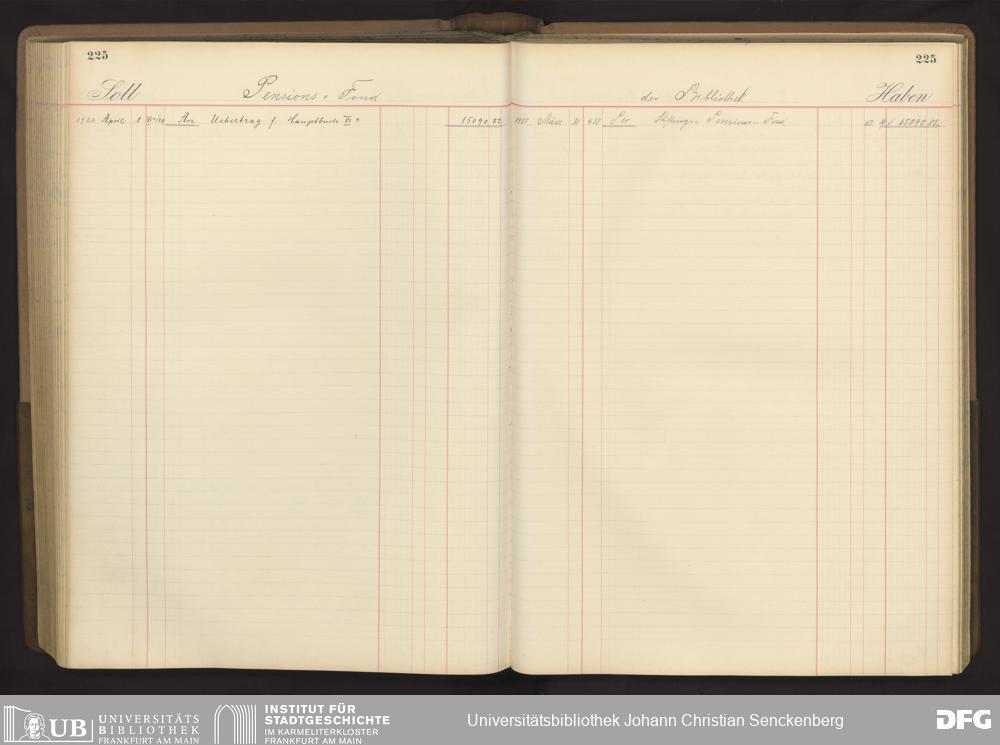 225
Soll Pensions-Fond
April 1 An Uebertrag f. Hauptbuch VI 15090.82
225
der Bibliothek Haben
März Per Pensions-Fond 15090.82
UB UNIVERSITÄTS
BIBLIOTHEK
FRANKFURT AM MAIN
INSTITUT FÜR
STADTGESCHICHTE
IM KARMELITERKLOSTER
FRANKFURT AM MAIN
Universitätsbibliothek Johann Christian Senckenberg
DFG